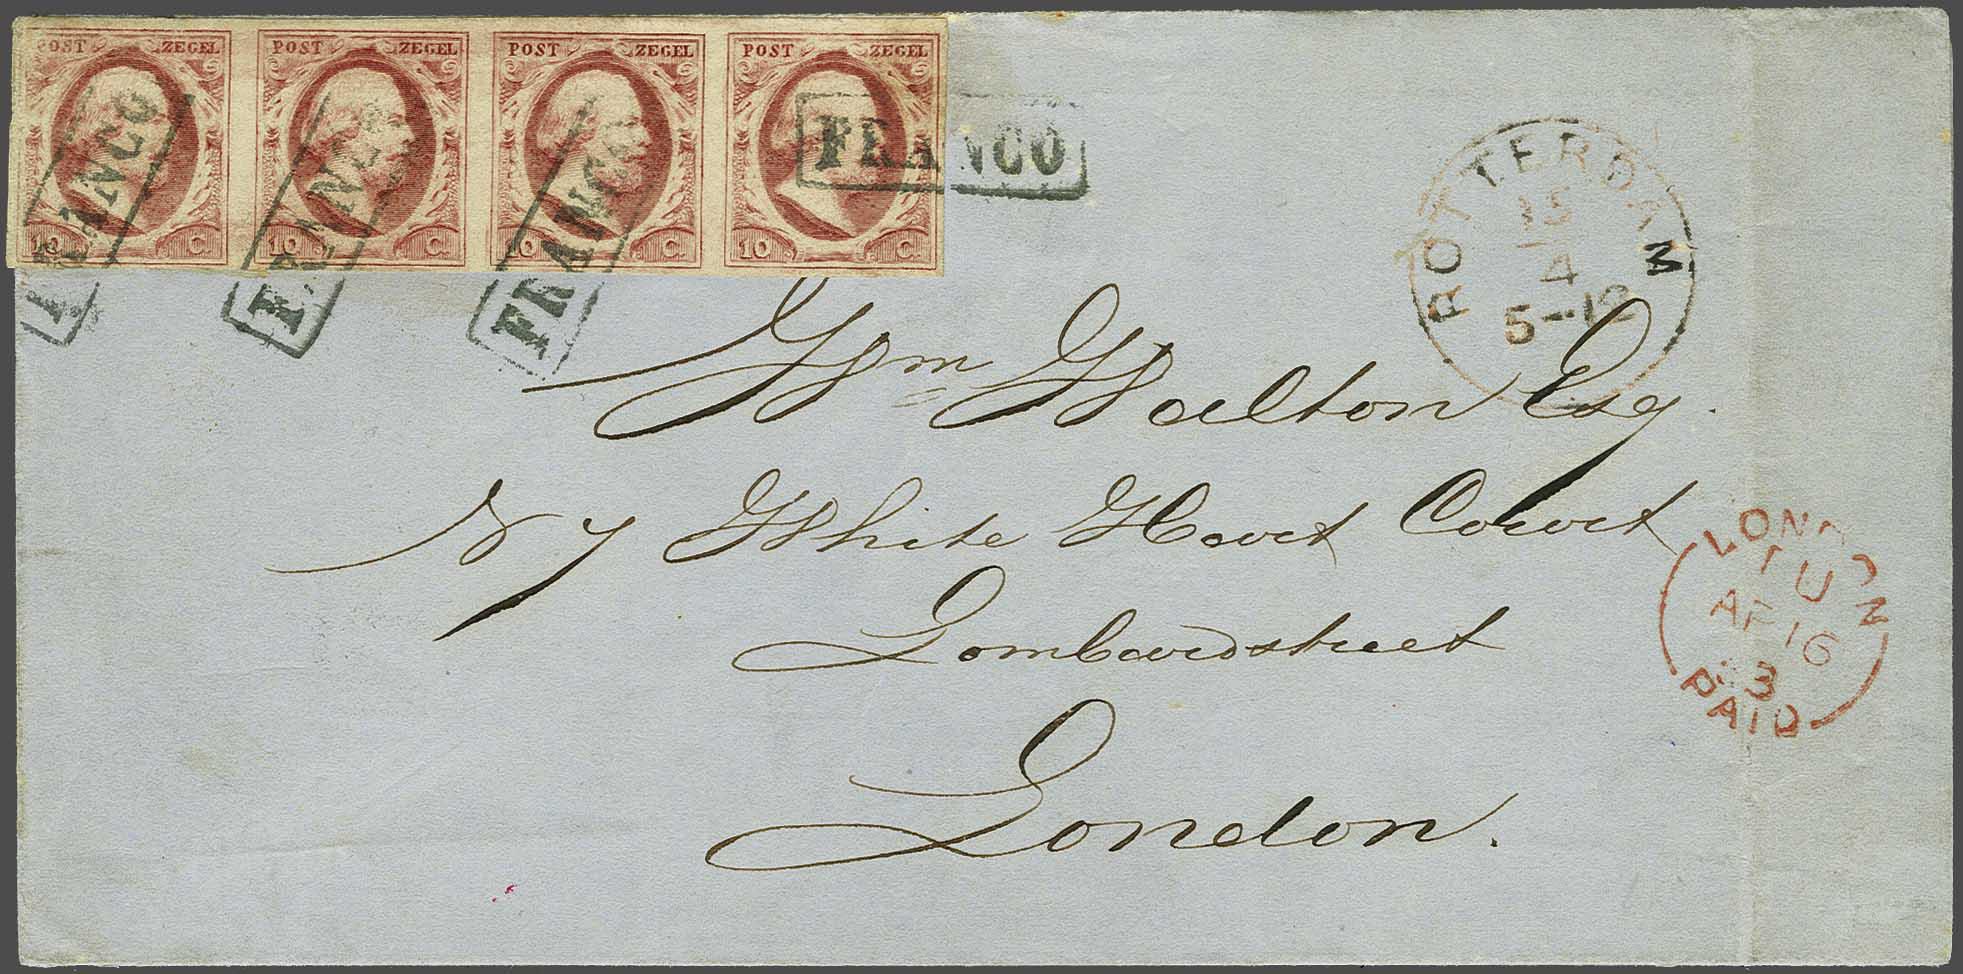 POST ZEGEL POST ZEGEL POST ZEGEL POST ZEGEL
10 C. 10 C. 10 C. 10 C.
FRANCO FRANCO FRANCO FRANCO
ROTTERDAM
15
4
5-12
Wm Walton Esq.
N 7 White Hart Court
Lombardstreet
London.
LONDON
TU
AP 16
3
PAID